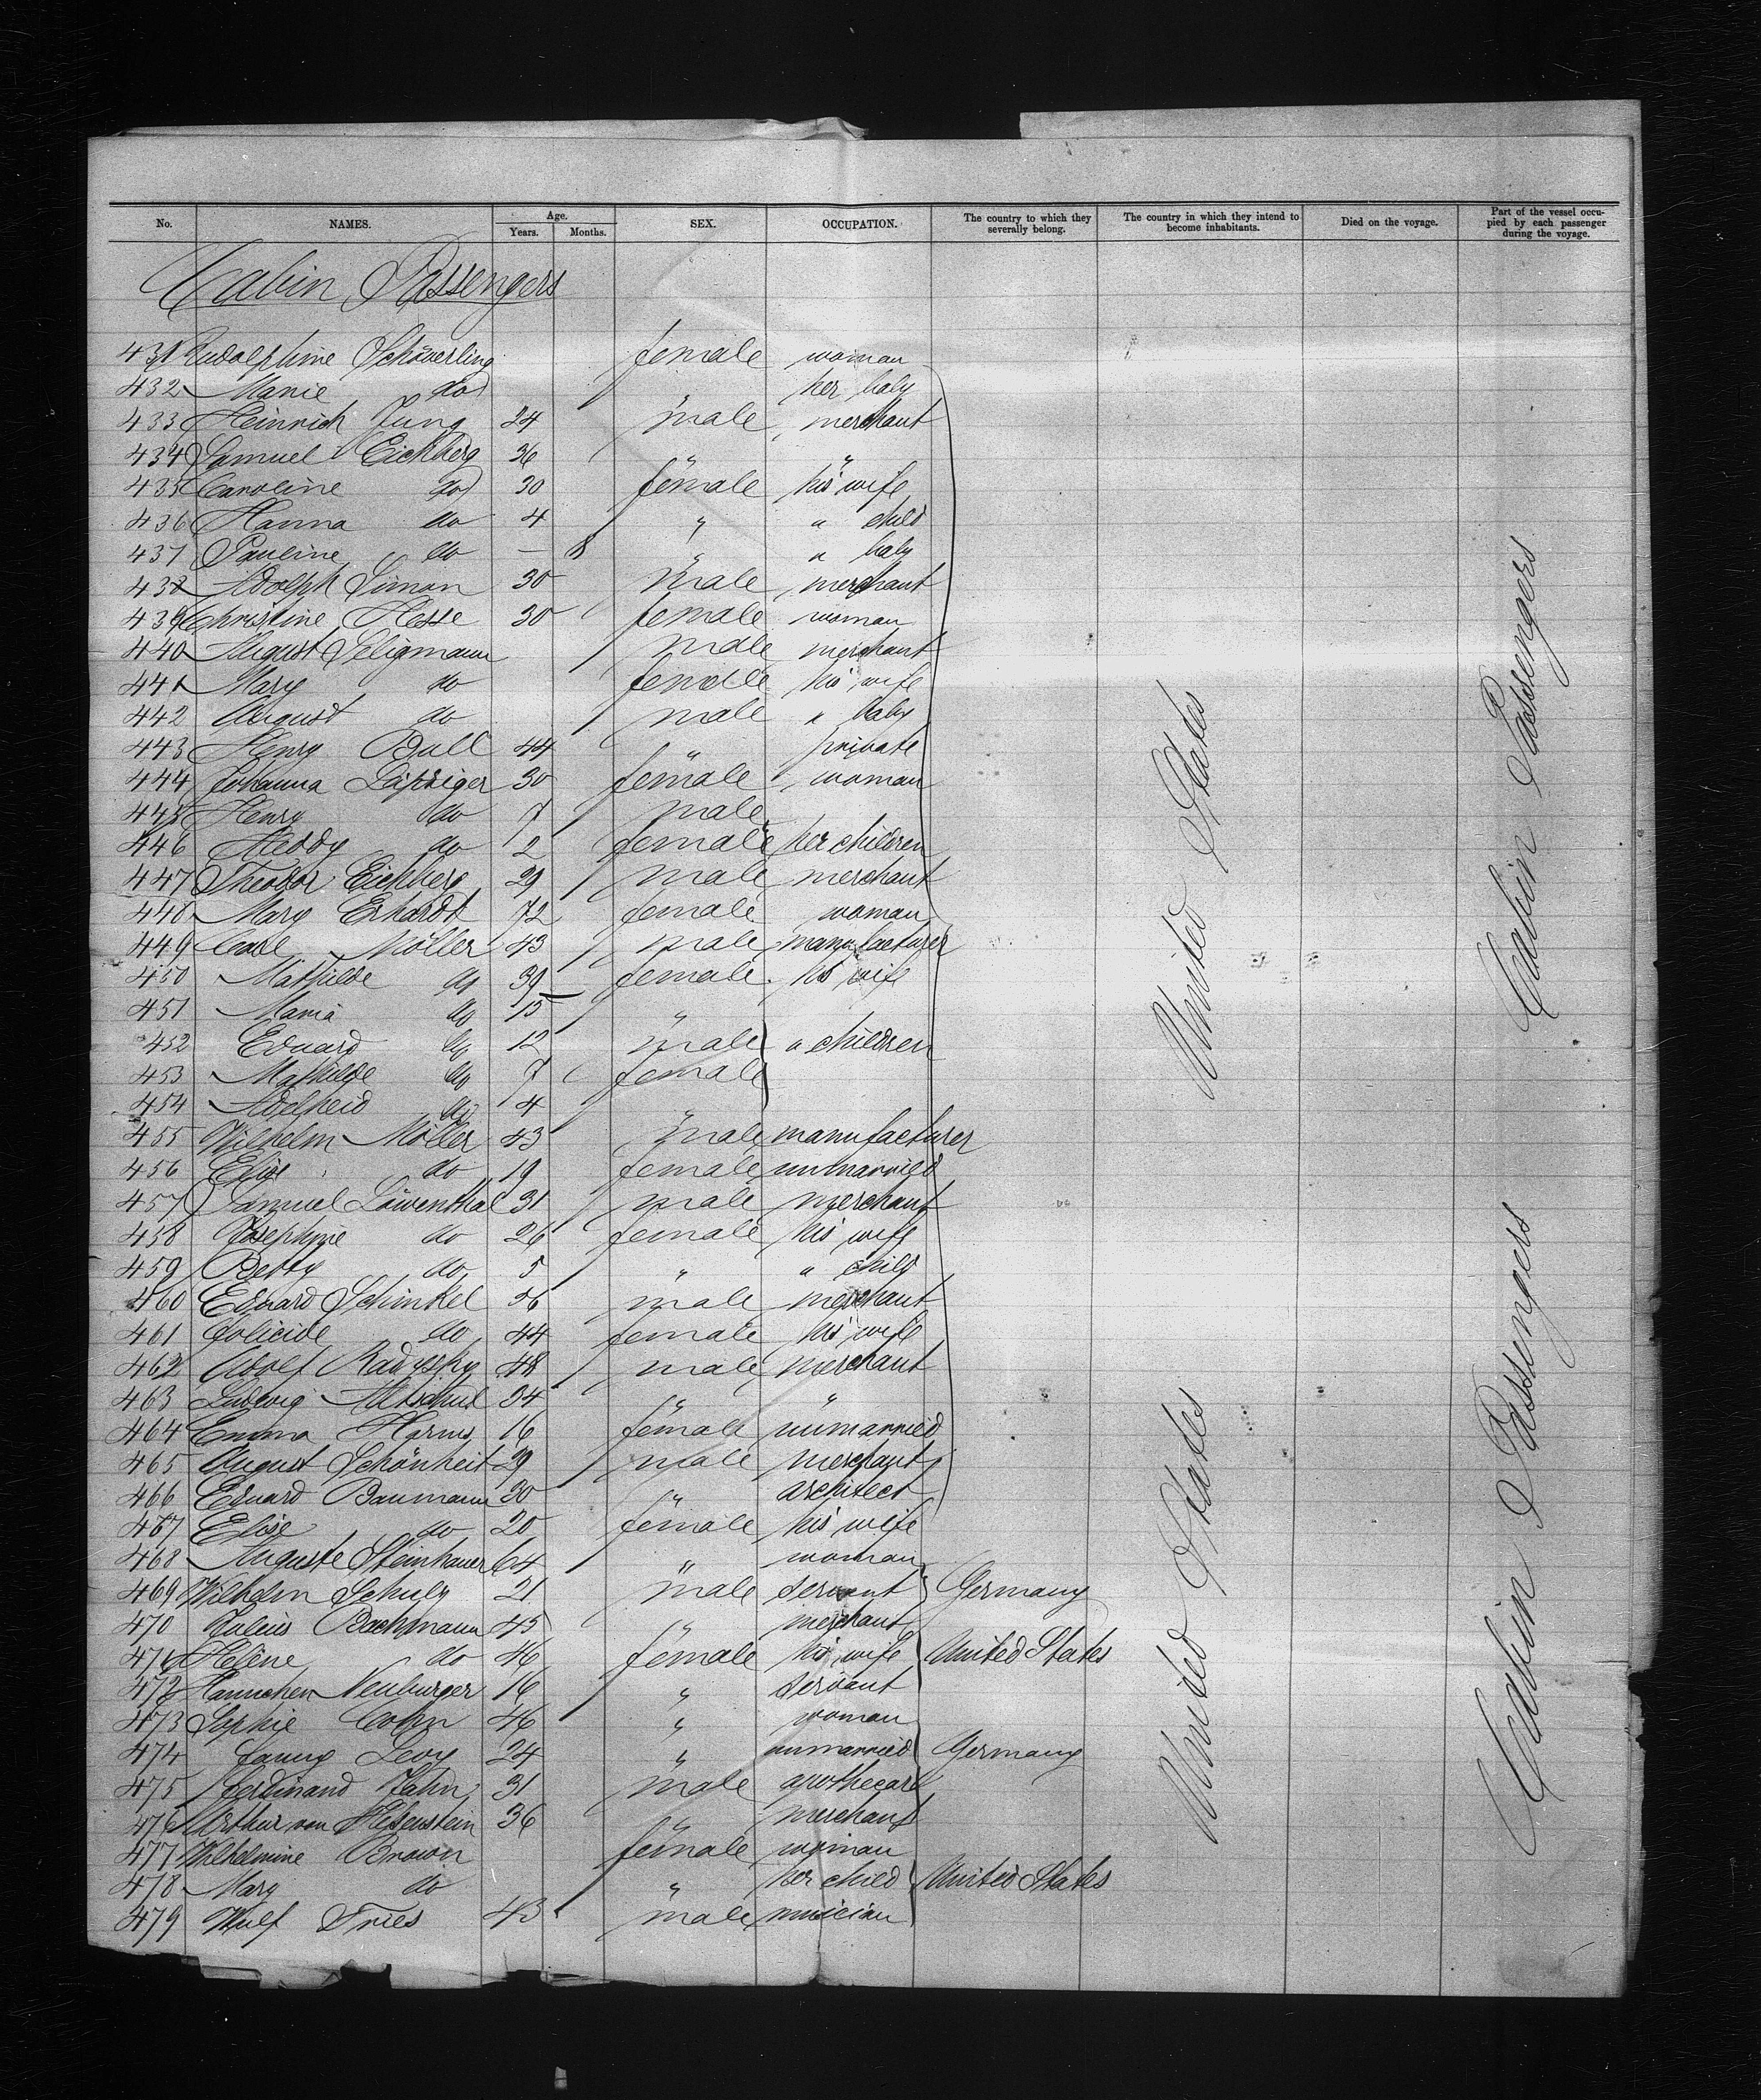 No. NAMES. Age. Years. Months. SEX. OCCUPATION. The country to which they severally belong. The country in which they intend to become inhabitants. Died on the voyage. Part of the vessel occupied by each passenger during the voyage.
Cabin Passengers
431 Rudolphine Schöuerling female woman
432 Marie do her baby
433 Heinrich Jung 24 male merchant
434 Samuel Eichberg 36 " "
435 Caroline do 30 female his wife
436 Hanna do 4 " " child
437 Pauline do — 8 " " baby
438 Adolph Simon 30 male merchant
439 Christine Hesse 30 female woman
440 August Seligmann male merchant
441 Mary do female his wife
442 August do male " baby
443 Henry Ball 44 " private
444 Johanna Leipziger 30 female woman
445 Henry do 7 male
446 Heddy do 2 female her children
447 Theodor Eichberg 29 male merchant
448 Mary Erhardt 72 female woman
449 Carl Möller 43 male manufacturer
450 Mathilde do 39 female his wife
451 Maria do 15 "
452 Eduard do 12 male " children
453 Mathilde do 7 female
454 Adelheid do 4 "
455 Wilhelm Möller 43 male manufacturer
456 Elise do 19 female unmarried
457 Samuel Löwenthal 31 male merchant
458 Josephine do 26 female his wife
459 Betty do 5 " " child
460 Eduard Schinkel 56 male merchant
461 do 44 female his wife
462 Adolf 48 male merchant
463 Ludwig Altschul 34 " "
464 Emma Harms 16 female unmarried
465 August Schönheit 29 male merchant
466 Eduard Baumann 30 " architect
467 Elise do 20 female his wife
468 Auguste Steinhauer 64 " woman
469 Wilhelm Schulz 21 male servant Germany
470 Julius Bachmann 45 " merchant
471 Helene do 46 female his wife United States
472 Hannchen Neuburger 16 " servant
473 Sophie Cohn 46 " woman
474 Fanny Levy 24 " unmarried Germany
475 Ferdinand Jahn 31 male apothecary
476 Arthur von 36 " merchant
477 Wilhelmine Brown female woman
478 Mary do " her child United States
479 Wulf Fries 43 male musician
United States
United States
Cabin Passengers
Cabin Passengers